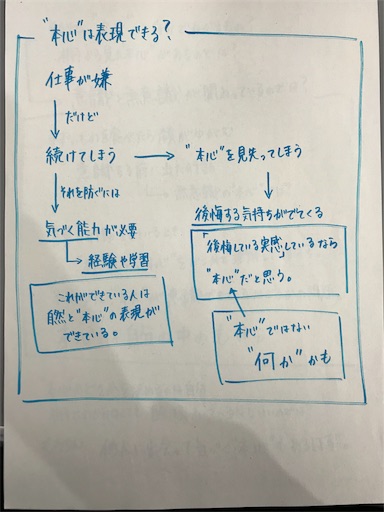 "本心"は表現できる?
仕事が嫌
だけど
続けてしまう → "本心"を見失ってしまう
それを防ぐには
気づく能力が必要
経験や学習
これができている人は
自然と"本心"の表現が
できている。
後悔する気持ちがでてくる
「後悔している実感しているなら
"本心"だと思う。
"本心"ではない
"何か"かも